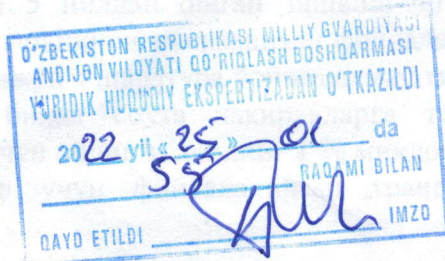 O'ZBEKISTON RESPUBLIKASI MILLIY GVARDIYASI
ANDIJON VILOYATI QO'RIQLASH BOSHQARMASI
YURIDIK HUQUQIY EKSPERTIZADAN O'TKAZILDI
2022 yil « 25 » 01 da
55 RAQAMI BILAN
QAYD ETILDI IMZO